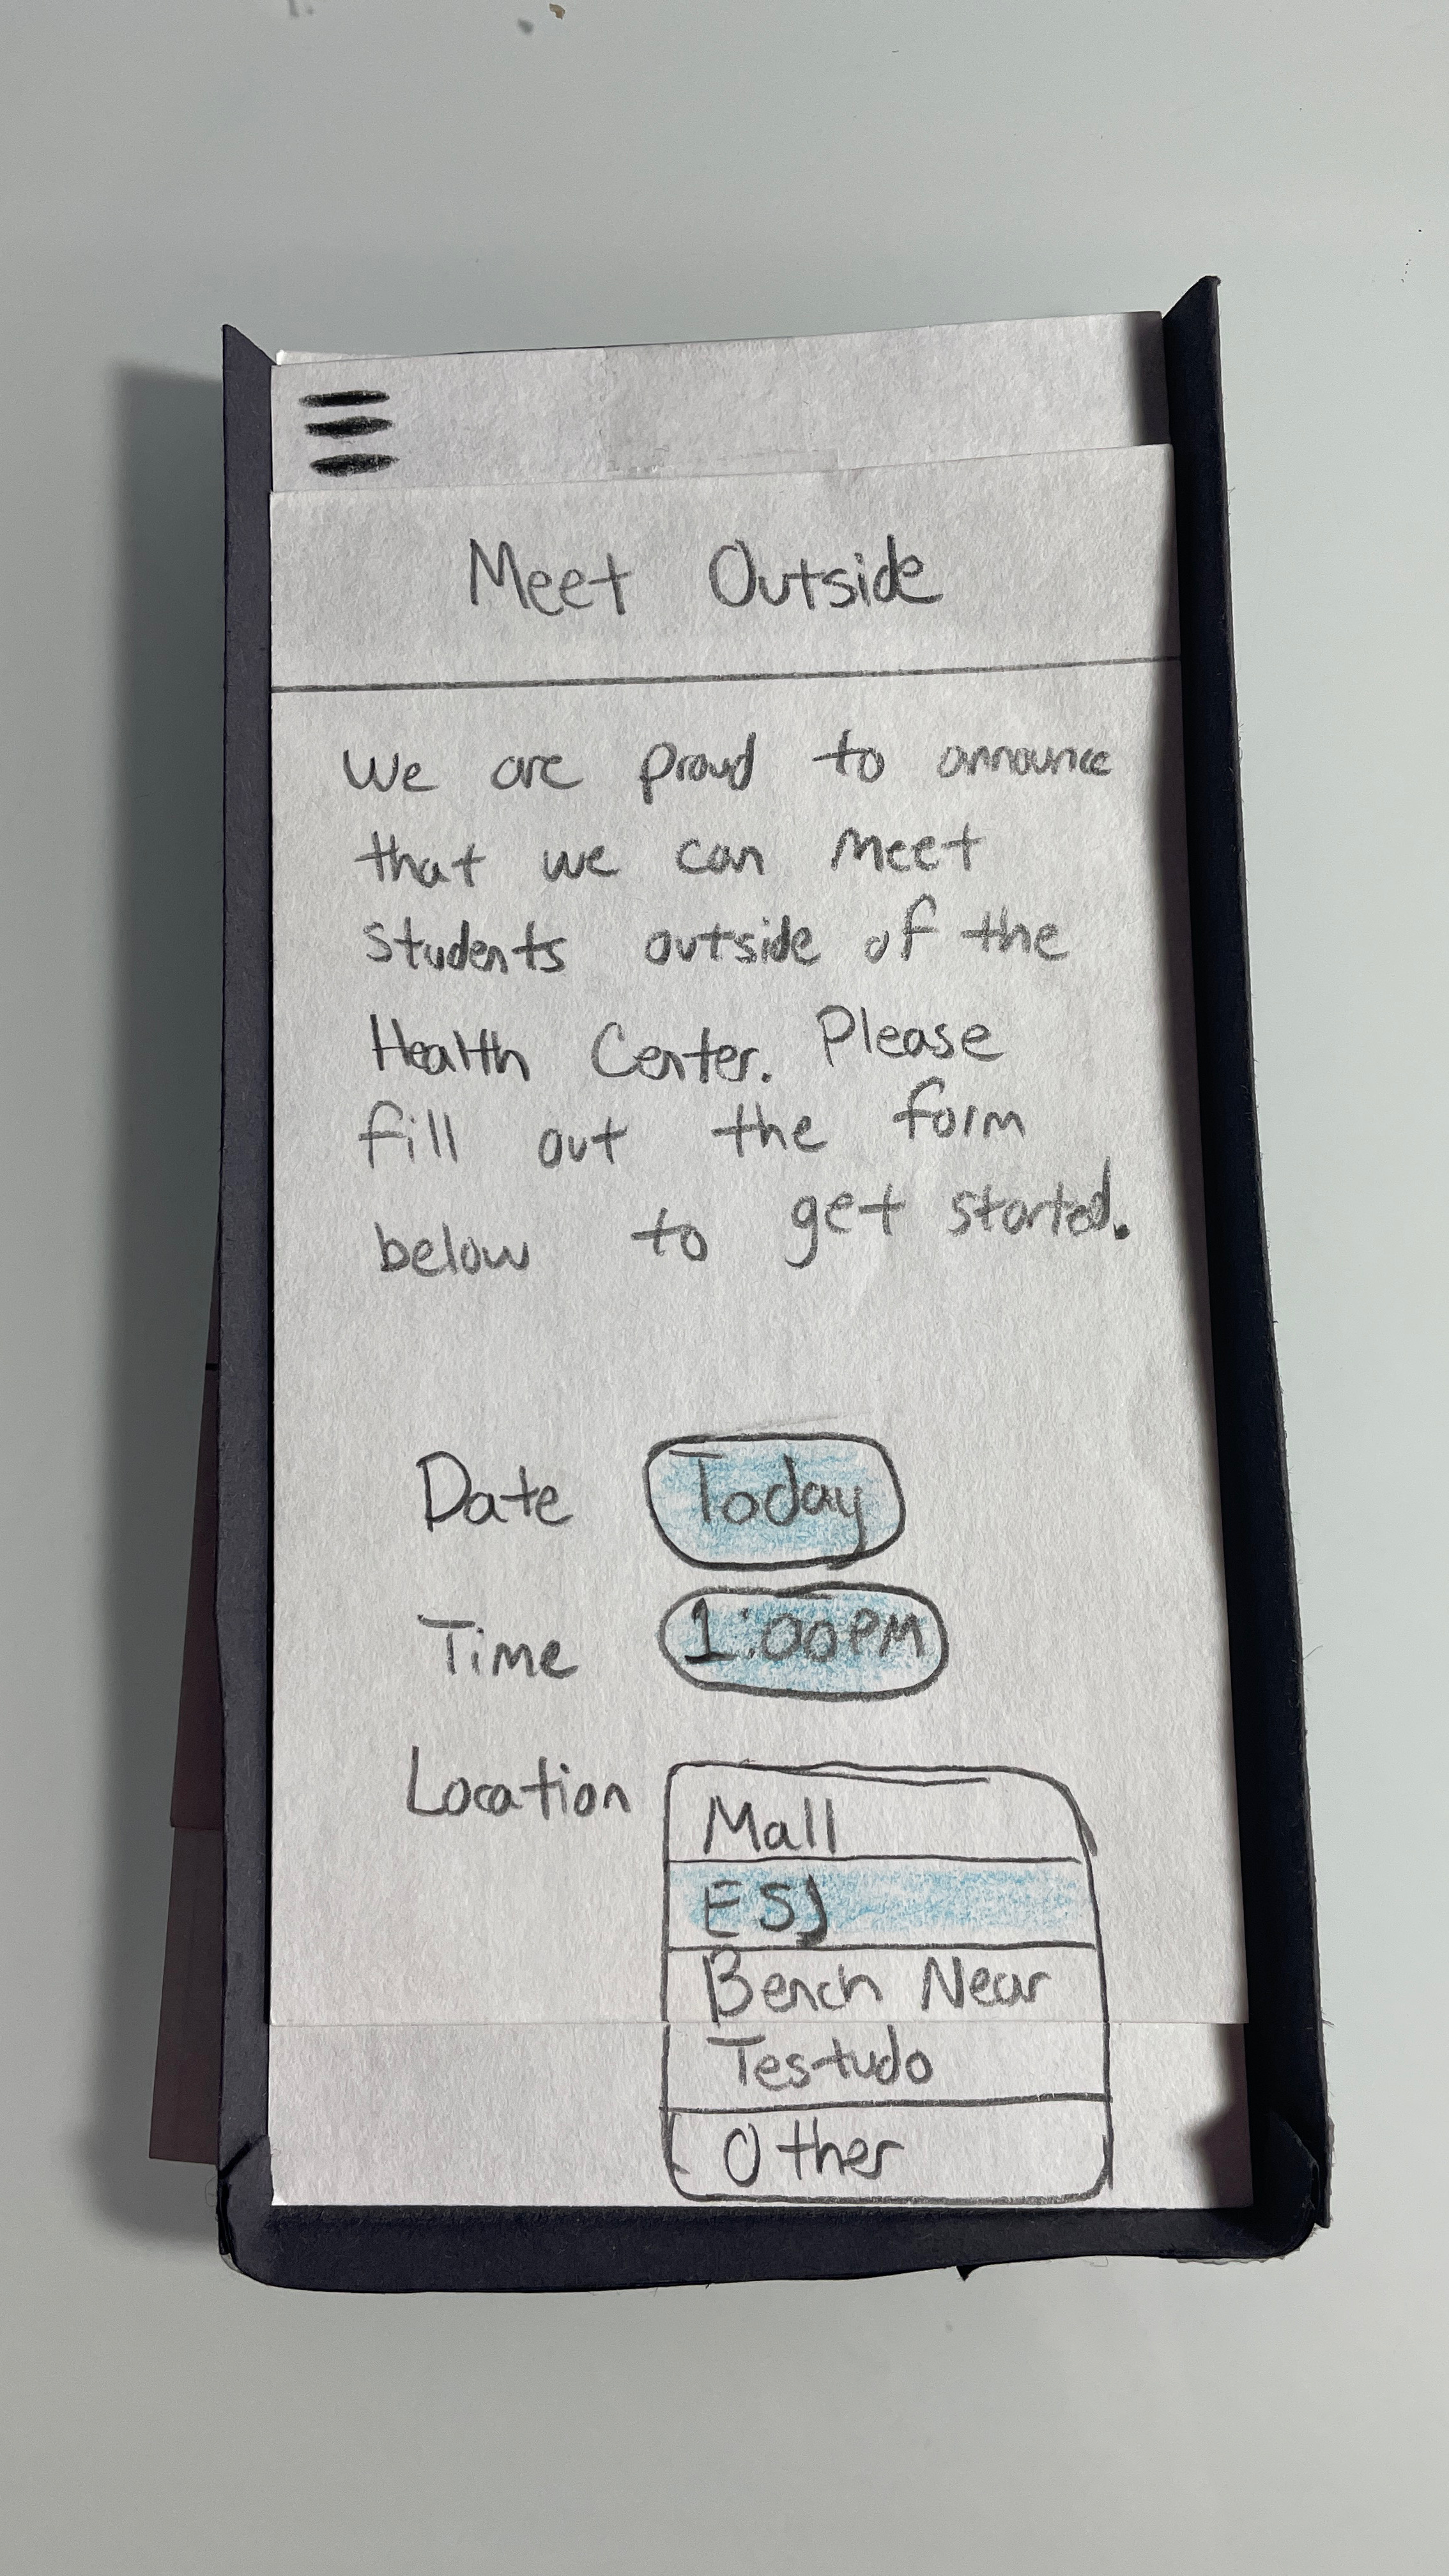 Meet Outside
We are proud to announce
that we can meet
students outside of the
Health Center. Please
fill out the form
below to get started.
Date Today
Time 1:00PM
Location
Mall
ESJ
Bench Near
Testudo
Other